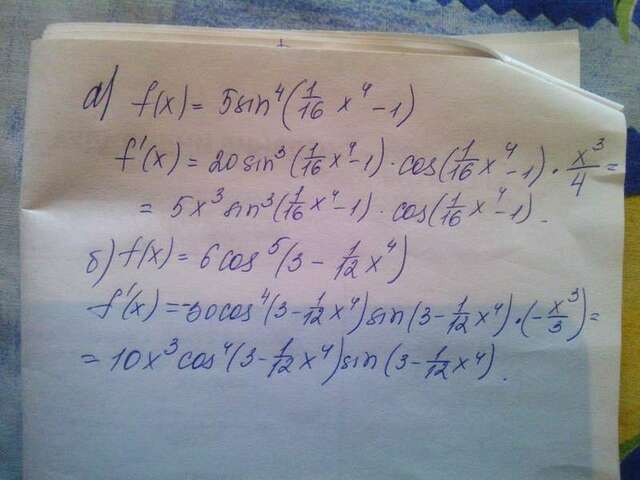 а) f(x) = 5sin⁴(1/16 x⁴ - 1)
f'(x) = 20sin³(1/16 x⁴ - 1) · cos(1/16 x⁴ - 1) · x³/4 =
= 5x³ sin³(1/16 x⁴ - 1) · cos(1/16 x⁴ - 1).
б) f(x) = 6cos⁵(3 - 1/12 x⁴)
f'(x) = -30cos⁴(3 - 1/12 x⁴) sin(3 - 1/12 x⁴) · (-x³/3) =
= 10x³ cos⁴(3 - 1/12 x⁴) sin(3 - 1/12 x⁴).